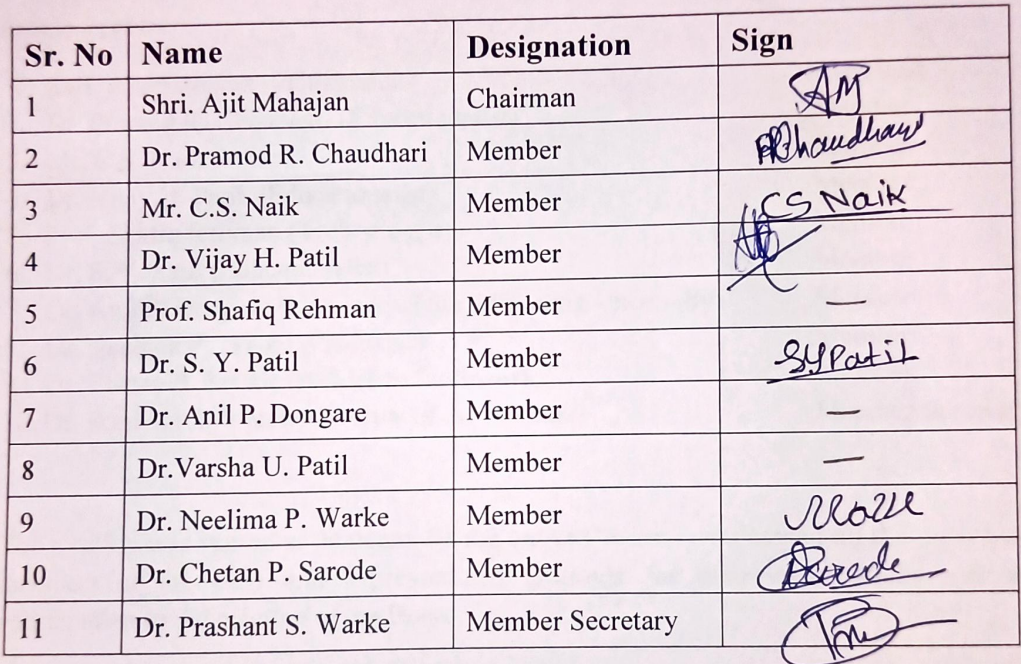 Sr. No Name Designation Sign
1 Shri. Ajit Mahajan Chairman AM
2 Dr. Pramod R. Chaudhari Member PRChaudhari
3 Mr. C.S. Naik Member CS Naik
4 Dr. Vijay H. Patil Member
5 Prof. Shafiq Rehman Member —
6 Dr. S. Y. Patil Member SYPatil
7 Dr. Anil P. Dongare Member —
8 Dr.Varsha U. Patil Member —
9 Dr. Neelima P. Warke Member
10 Dr. Chetan P. Sarode Member
11 Dr. Prashant S. Warke Member Secretary